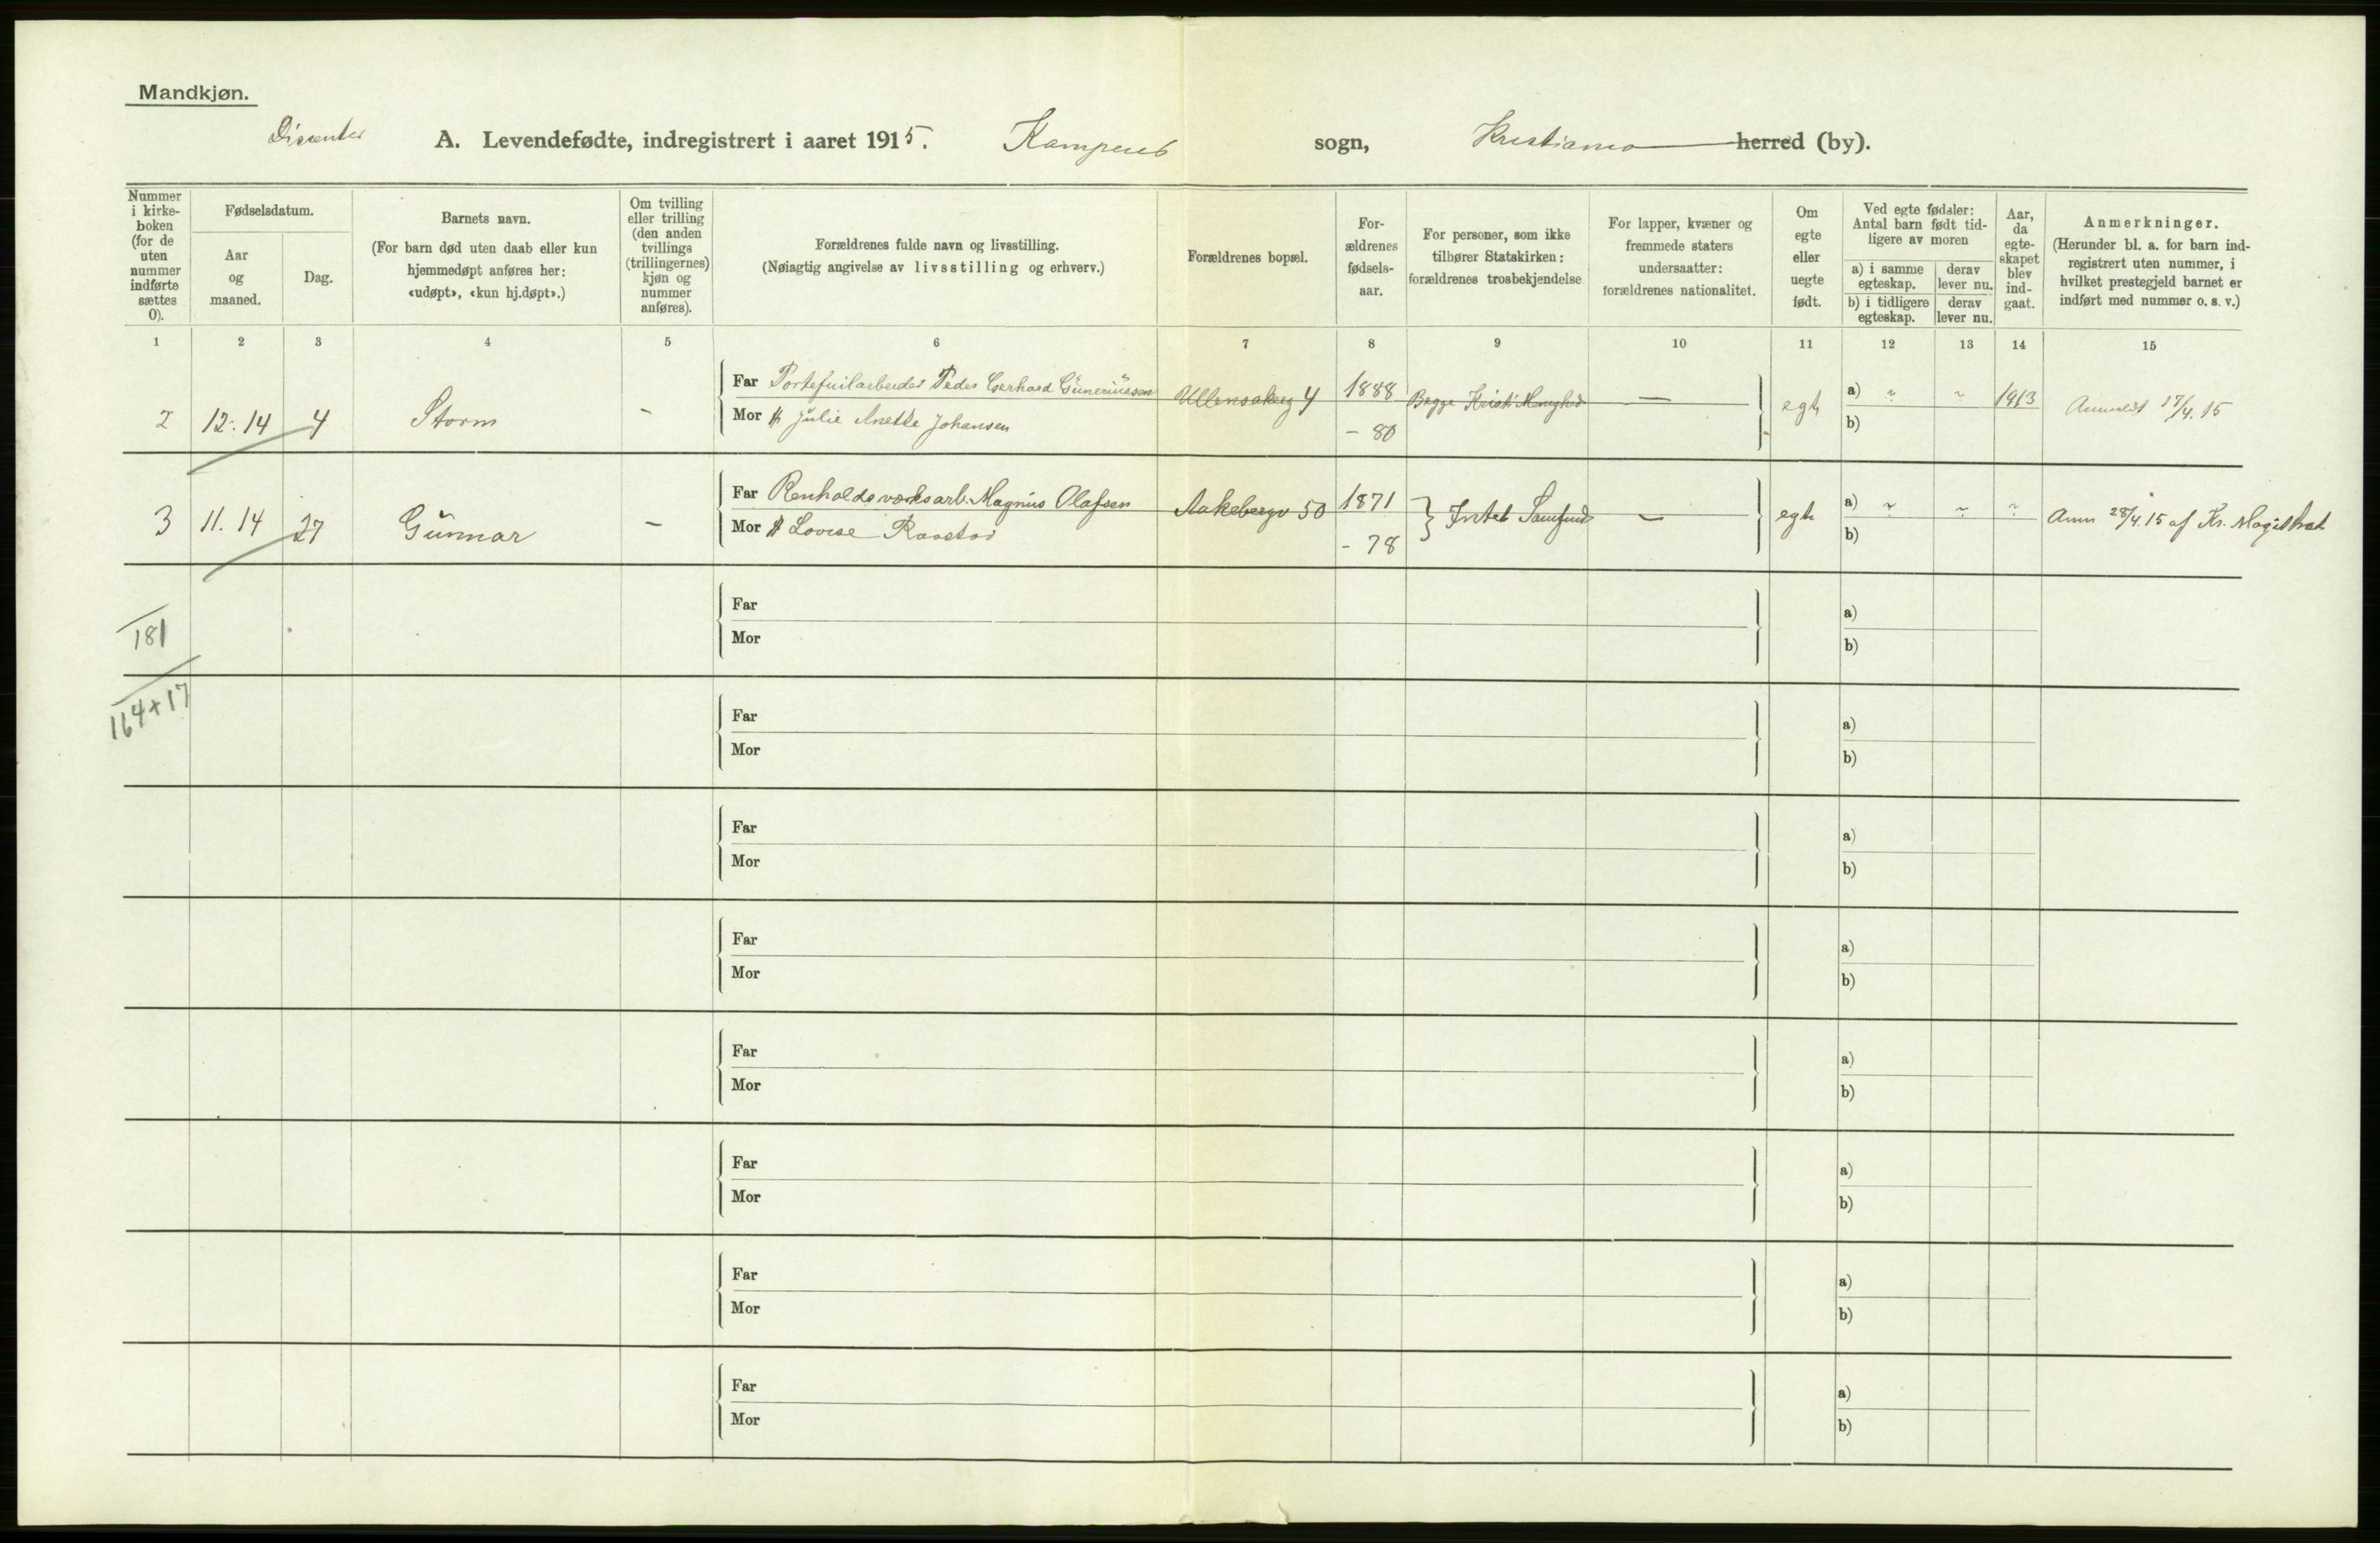 Mandkjøn.
Dissenter A. Levendefødte, indregistrert i aaret 1915. Kampens sogn, Kristiania herred (by).
Nummer i kirke-boken (for de uten nummer indførte sættes 0).
Fødselsdatum.
Aar og maaned.
Dag.
Barnets navn.
(For barn død uten daab eller kun hjemmedøpt anføres her: «udøpt», «kun hj.døpt».)
Om tvilling eller trilling (den anden tvillings (trillingernes) kjøn og nummer anføres).
Forældrenes fulde navn og livsstilling.
(Nøiagtig angivelse av livsstilling og erhverv.)
Forældrenes bopæl.
For-ældrenes fødsels-aar.
For personer, som ikke tilhører Statskirken: forældrenes trosbekjendelse
For lapper, kvæner og fremmede staters undersaatter: forældrenes nationalitet.
Om egte eller uegte født.
Ved egte fødsler: Antal barn født tid-ligere av moren
a) i samme egteskap.
derav lever nu.
b) i tidligere egteskap.
derav lever nu.
Aar, da egte-skapet blev ind-gaat.
Anmerkninger.
(Herunder bl. a. for barn ind-registrert uten nummer, i hvilket prestegjeld barnet er indført med nummer o. s. v.)
1 2 3 4 5 6 7 8 9 10 11 12 13 14 15
2 12. 14 4 Storm - Far Portefuilarbeider Peder Gerhard Guneriussen Ullensakerg 4 1888 Begge Kristi Menghed — egte a) " " 1913 Anmeldt 17/4. 15
Mor Julie Anette Johansen - 80 b)
3 11. 14 27 Gunnar - Far Renholdsværksarb. Magnus Olafsen Aakebergv 50 1871 Intet Samfund — egte a) " " " Anm 28/4. 15 af Kr. Magistrat
Mor Lovise - 78 b)
181
164+17
Far a)
Mor b)
Far a)
Mor b)
Far a)
Mor b)
Far a)
Mor b)
Far a)
Mor b)
Far a)
Mor b)
Far a)
Mor b)
Far a)
Mor b)